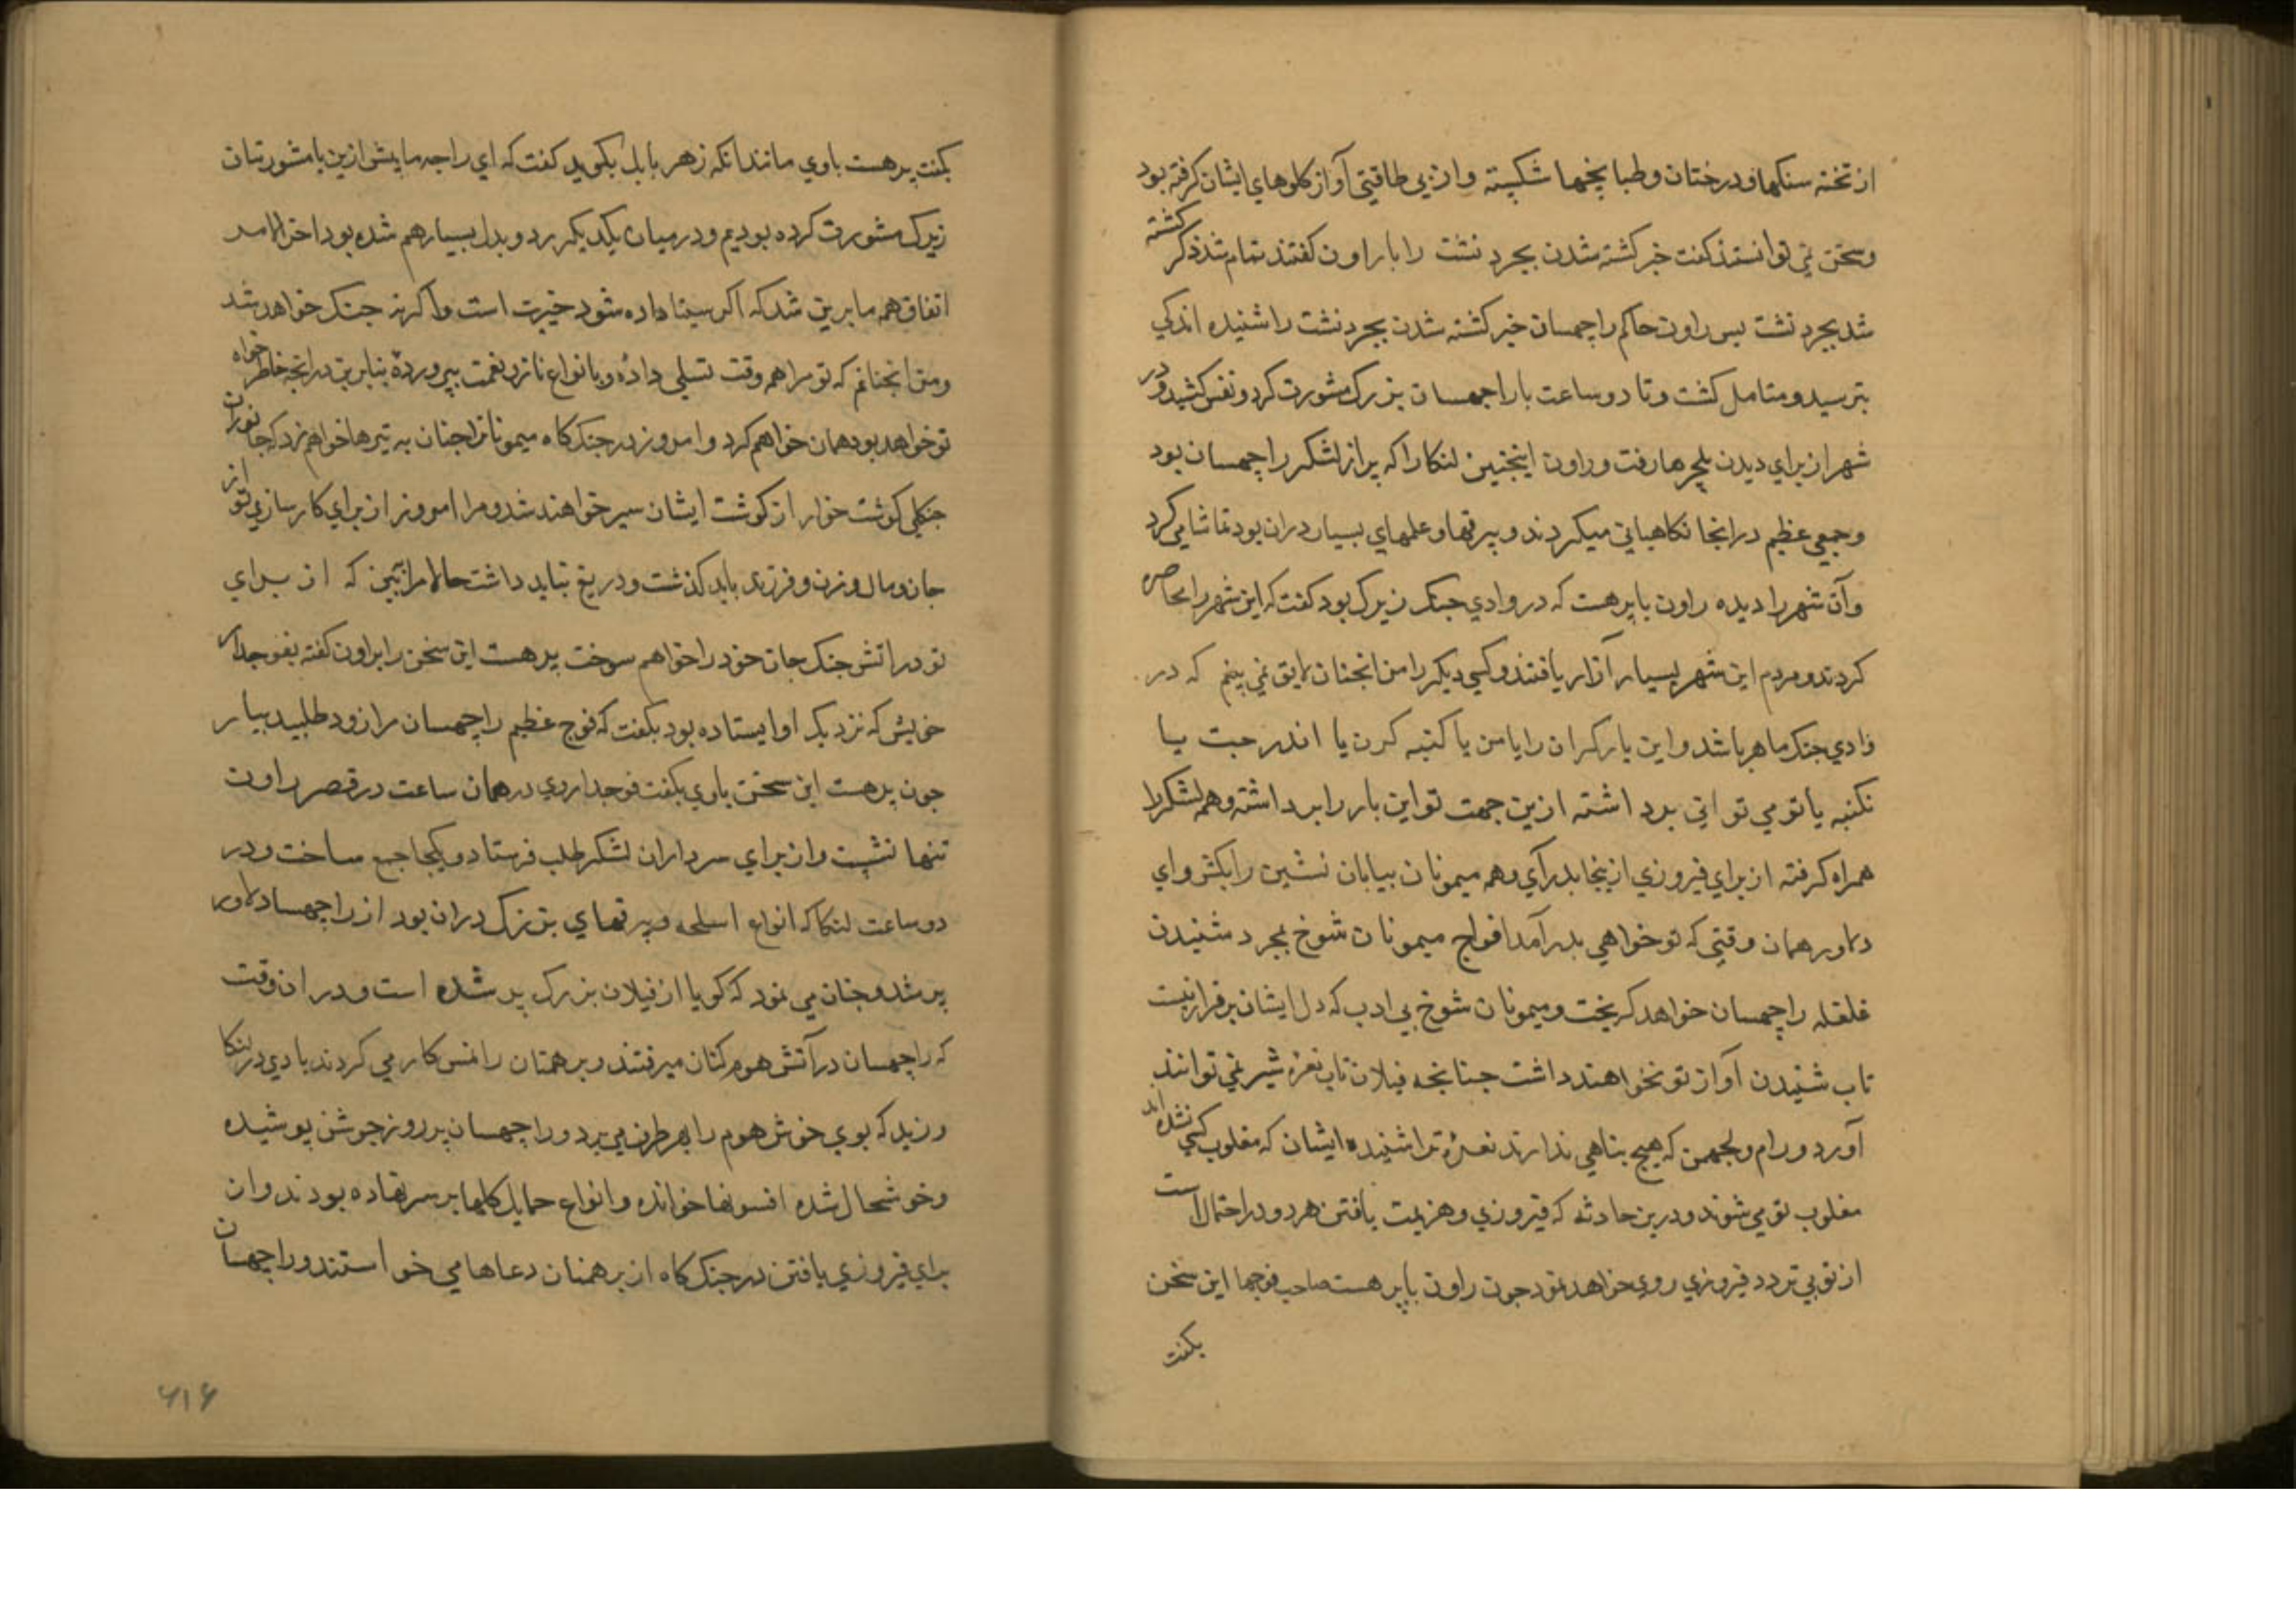 از تخته سنکها و درختان و طبایخها شکسته و از بی طاقتی آواز کلوهای ایشان کرفته بود
و سخن نمی توانستند کفت خبر کشته شدن بجرد نشت را با راون کفتند تمام شد ذکر کشته
شد بجرد نشت پس راون حاکم راچهسان خبر کشته شدن بجرد نشت را شنیده اندکی
بترسید و متامل کشت و تا دو ساعت با راچهسان بزرک مشورت کرد و نفس کشید و در
شهر از برای دیدن ملچرها رفت و راون اینچنین لنکا را که پر از لشکر راچهسان بود
و جمعی عظیم در انجا نکاهبانی میکردند و بیرقها و علمهای بسیار دران بود تماشا می کرد
و آن شهر را دیده راون با پرهست که در وادی جنک زیرک بود کفت که این شهر را محاصره
کردند و مردم این شهر بسیار آزار یافتند و کسی دیکر را من انچنان لایق نمی بینم که در
وادی جنک ماهر باشد و این بار کران را یا من یا کنبه کرن یا اندرجت یا
نکنبه یا تو می توانی برداشته ازین جهت تو این بار را برداشته و همه لشکر را
همراه کرفته از برای فیروزی ازینجا بدر آی و همه میمونان بیابان نشین را بکش و ای
دلاور همان وقتی که تو خواهی بدر آمد افواج میمونان شوخ بمجرد شنیدن
غلغله راچهسان خواهد کریخت و میمونان شوخ بی ادب که دل ایشان برقرار نیست
تاب شنیدن آواز تو نخواهند داشت چنانچه فیلان تاب نعره شیر نمی توانند
آورد و رام و لچهمن که هیچ پناهی ندارند نعره ترا شنیده ایشان که مغلوب کسی نشده اند
مغلوب تو می شوند و درین حادثه که فیروزی و هزیمت یافتن هر دو در احتمال است
از تو بی تردد فیروزی روی خواهد نمود چون راون با پرهست صاحب فوجها این سخن
بکفت
بکفت پرهست با وی مانند انکه زهر با بل بکوید کفت که ای راجه ما پیش ازین با مشورتیان
زیرک مشورت کرده بودیم و در میان یکدیکر رد و بدل بسیار هم شده بود اخر الامر
اتفاق همه ما برین شد که اکر سیتا داده شود خیرت است و اکر نه جنک خواهد شد
و من انچنانم که تو مرا همه وقت تسلی داده و بانواع ناز و نعمت بپرورده بنابرین در انچه خاطر خواه
تو خواهد بود همان خواهم کرد و امروز در جنک کاه میمونان را چنان به تیرها خواهم زد که جانوران
جنکلی کوشت خوار از کوشت ایشان سیر خواهند شد و مرا امروز از برای کارسازی تو از
جان و مال و زن و فرزند باید کذشت و دریغ نباید داشت حالا مرا ببین که از برای
تو در اتش جنک جان خود را خواهم سوخت پرهست این سخن را براون کفته بفوجدار
خویش که نزدیک او ایستاده بود بکفت که فوج عظیم راچهسان را زود طلبیده بیار
چون پرهست این سخن با وی بکفت فوجدار وی در همان ساعت در قصر راون
تنها نشست و از برای سرداران لشکر طلب فرستاد و یکجا جمع ساخت و در
دو ساعت لنکا که انواع اسلحه و بیرقهای بزرک دران بود از راچهسان دلاور
پر شد و چنان می نمود که کویا از فیلان بزرک پر شده است و در ان وقت
که راچهسان در آتش هوم کنان میرفتند و برهمنان را نمسکار می کردند بادی در لنکا
وزید که بوی خوش هوم را بهر طرف می برد و راچهسان پر روز جوشن پوشیده
و خوشحال شده افسونها خوانده و انواع حمایل کلها بر سر نهاده بودند و از
برای فیروزی یافتن در جنک کاه از برهمنان دعاها می خواستند و راچهسان
۶۱۶